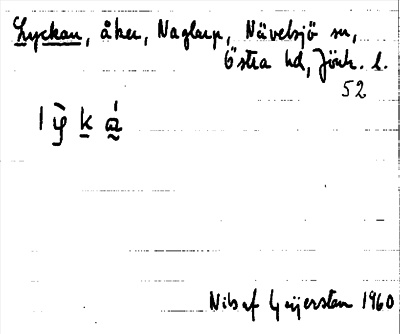 Lyckan, åker, Naglarp, Nävelsjö sn,
Östra hd, Jönk. l.
52
l ȳ k á
Nils af Geijerstam 1960